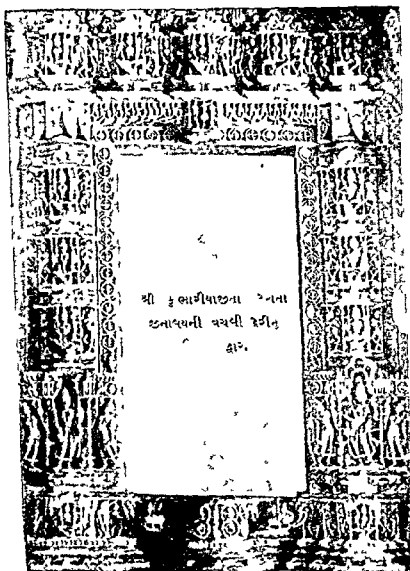 શ્રી કુંભારીયાજીના
જીનાલયની વચલી દેરીનું
દ્વાર.